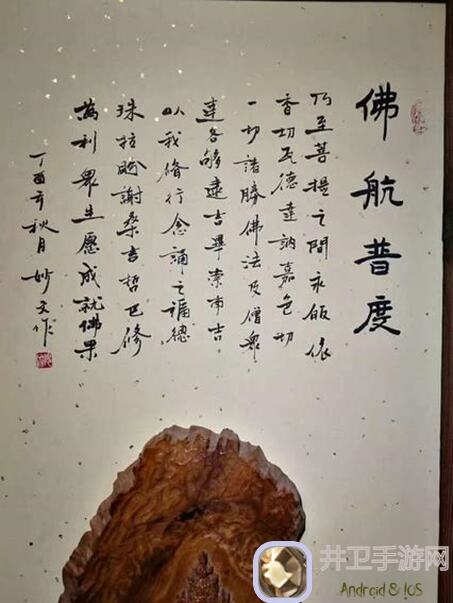 佛航普度
乃至菩提之間永皈依
香切瓦德達訥嘉色切
一切諸勝佛法及僧衆
達各够達吉畢索南吉
以我修行念誦之福德
珠拉盼謝桑吉哲巴修
為利眾生愿成就佛果
丁酉年秋月妙文作
井卫手游网
Android & IOS